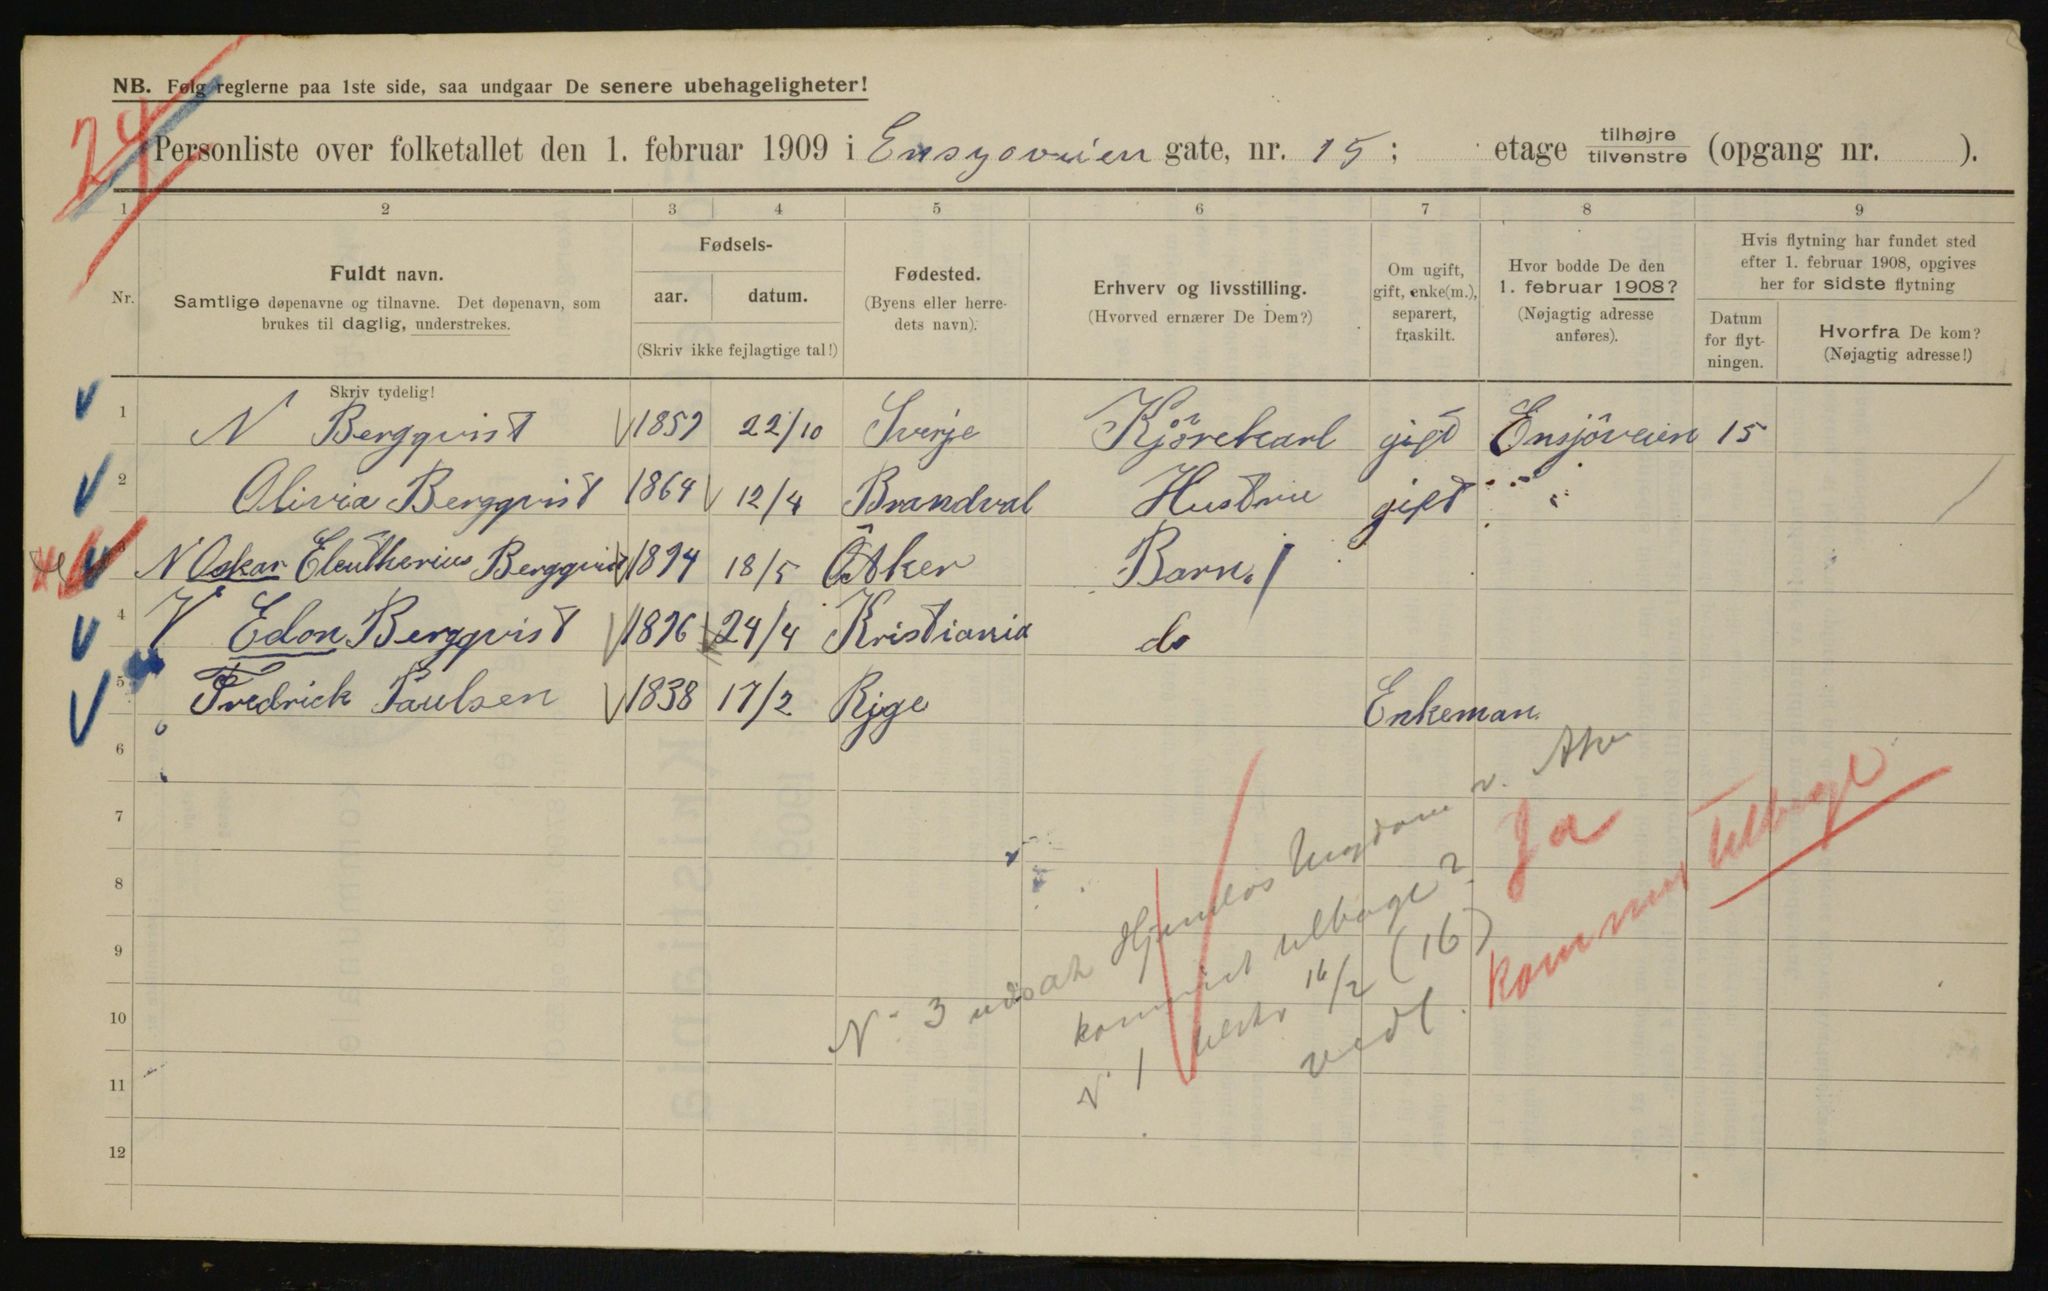 24
NB. Følg reglerne paa 1ste side, saa undgaar De senere ubehageligheter!
Personliste over folketallet den 1. februar 1909 i Ensyoveien gate, nr. 15; etage tilhøjre tilvenstre (opgang nr. ).
1 2 3 4 5 6 7 8 9
Nr.
Fuldt navn.
Samtlige døpenavne og tilnavne. Det døpenavn, som
brukes til daglig, understrekes.
Skriv tydelig!
Fødsels-
aar. datum.
(Skriv ikke fejlagtige tal!)
Fødested.
(Byens eller herre-
dets navn).
Erhverv og livsstilling.
(Hvorved ernærer De Dem?)
Om ugift,
gift, enke(m.),
separert,
fraskilt.
Hvor bodde De den
1. februar 1908?
(Nøjagtig adresse
anføres).
Hvis flytning har fundet sted
efter 1. februar 1908, opgives
her for sidste flytning
Datum
for flyt-
ningen.
Hvorfra De kom?
(Nøjagtig adresse!)
1 N Bergqvist 1857 22/10 Sverje Kjörekarl gift Ensjöveien 15
2 Olivia Bergqvist 1864 12/4 Brandval Hustru gift " "
3 N Oskar Eleutherius Bergqvist 1894 18/5 Aker Barn
4 Edon Bergqvist 1896 24/4 Kristiania do
5 Fredrick Paulsen 1838 17/2 Rjge Enkeman
6
7
8
9
10
11
12
N 3 udsat Hjemløs Ungdom v. Aker
kommet tilbage?
N 1 16/2 (16)
vedl.
Ja
kommet tilbage